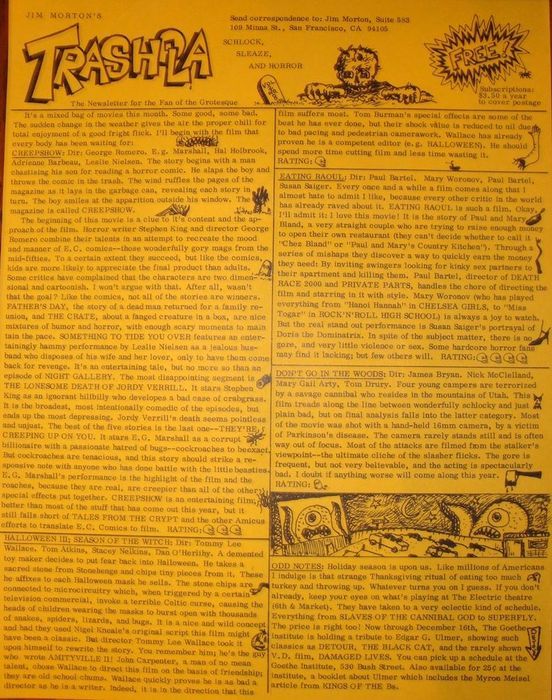 JIM MORTON'S
TRASHOLA
SCHLOCK,
SLEAZE,
AND HORROR
Send correspondence to: Jim Morton, Suite 583
109 Minna St., San Francisco, CA 94105
FREE!
Subscriptions:
$3.50 a year
to cover postage
The Newsletter for the Fan of the Grotesque
It's a mixed bag of movies this month. Some good, some bad.
The sudden change in the weather gives the air the proper chill for
total enjoyment of a good fright flick. I'll begin with the film that
every body has been waiting for:
CREEPSHOW: Dir: George Romero. E.G. Marshall, Hal Holbrook,
Adrienne Barbeau, Leslie Nielsen. The story begins with a man
chastising his son for reading a horror comic. He slaps the boy and
throws the comic in the trash. The wind ruffles the pages of the
magazine as it lays in the garbage can, revealing each story in
turn. The boy smiles at the apparition outside his window. The
magazine is called CREEPSHOW.
The beginning of this movie is a clue to it's content and the ap-
proach of the film. Horror writer Stephen King and director George
Romero combine their talents in an attempt to recreate the mood
and manner of E.C. comics--those wonderfully gory mags from the
mid-fifties. To a certain extent they succeed, but like the comics,
kids are more likely to appreciate the final product than adults.
Some critics have complained that the characters are two dimen-
sional and cartoonish. I won't argue with that. After all, wasn't
that the goal? Like the comics, not all of the stories are winners.
FATHER'S DAY, the story of a dead man returned for a family re-
union, and THE CRATE, about a fanged creature in a box, are nice
mixtures of humor and horror, with enough scary moments to main
tain the pace. SOMETHING TO TIDE YOU OVER features an enter-
tainingly hammy performance by Leslie Nielsen as a jealous hus-
band who disposes of his wife and her lover, only to have them come
back for revenge. It's an entertaining tale, but no more so than an
episode of NIGHT GALLERY. The most disappointing segment is
THE LONESOME DEATH OF JORDY VERRILL. It stars Stephen
King as an ignorant hillbilly who developes a bad case of crabgrass.
It is the broadest, most intentionally comedic of the episodes, but
ends up the most depressing. Jordy Verrill's death seems pointless
and unjust. The best of the five stories is the last one--THEY'RE
CREEPING UP ON YOU. It stars E.G. Marshall as a corrupt
billionaire with a passionate hatred of bugs--cockroaches to be exact.
But cockroaches are tenacious, and this story should strike a re-
sponsive note with anyone who has done battle with the little beasties.
E.G. Marshall's performance is the highlight of the film and the
roaches, because they are real, are creepier than all of the other
special effects put together. CREEPSHOW is an entertaining film,
better than most of the stuff that has come out this year, but it
still falls short of TALES FROM THE CRYPT and the other Amicus
efforts to translate E.C. Comics to film. RATING:
HALLOWEEN III; SEASON OF THE WITCH: Dir: Tommy Lee
Wallace. Tom Atkins, Stacey Nelkins, Dan O'Herlihy. A demented
toy maker decides to put fear back into Halloween. He takes a
sacred stone from Stonehenge and chips tiny pieces from it. These
he affixes to each Halloween mask he sells. The stone chips are
connected to microcircuitry which, when triggered by a certain
television commercial, invoke a terrible Celtic curse, causing the
heads of children wearing the masks to burst open with thousands
of snakes, spiders, lizards, and bugs. It is a nice and wild concept
and had they used Nigel Kneale's original script this film might
have been a classic. But director Tommy Lee Wallace took it
upon himself to rewrite the story. You remember him; he's the guy
who wrote AMITYVILLE II! John Carpenter, a man of no mean
talent, chose Wallace to direct this film on the basis of friendship;
they are old school chums. Wallace quickly proves he is as bad a
director as he is a writer. Indeed, it is in the direction that this
film suffers most. Tom Burman's special effects are some of the
best he has ever done, but their shock value is reduced to nil due
to bad pacing and pedestrian camerawork. Wallace has already
proven he is a competent editor (e.g. HALLOWEEN). He should
spend more time cutting film and less time wasting it.
RATING:
EATING RAOUL: Dir: Paul Bartel. Mary Woronov, Paul Bartel,
Susan Saiger. Every once and a while a film comes along that I
almost hate to admit I like, because every other critic in the world
has already raved about it. EATING RAOUL is such a film. Okay,
I'll admit it: I love this movie! It is the story of Paul and Mary
Bland, a very straight couple who are trying to raise enough money
to open their own restaurant (they can't decide whether to call it
"Chez Bland" or "Paul and Mary's Country Kitchen"). Through a
series of mishaps they discover a way to quickly earn the money
they need: By inviting swingers looking for kinky sex partners to
their apartment and killing them. Paul Bartel, director of DEATH
RACE 2000 and PRIVATE PARTS, handles the chore of directing the
film and starring in it with style. Mary Woronov (who has played
everything from "Hanoi Hannah" in CHELSEA GIRLS, to "Miss
Togar" in ROCK'N'ROLL HIGH SCHOOL) is always a joy to watch.
But the real stand out performance is Susan Saiger's portrayal of
Doris the Dominatrix. In spite of the subject matter, there is no
gore, and very little violence or sex. Some hardcore horror fans
may find it lacking; but few others will. RATING:
DON'T GO IN THE WOODS: Dir: James Bryan. Nick McClelland,
Mary Gail Arty, Tom Drury. Four young campers are terrorized
by a savage cannibal who resides in the mountains of Utah. This
film treads along the line between wonderfully schlocky and just
plain bad, but on final analysis falls into the latter category. Most
of the movie was shot with a hand-held 16mm camera, by a victim
of Parkinson's disease. The camera rarely stands still and is often
way out of focus. Most of the attacks are filmed from the stalker's
viewpoint--the ultimate cliche of the slasher flicks. The gore is
frequent, but not very believable, and the acting is spectacularly
bad. I doubt if anything worse will come along this year.
RATING:
ODD NOTES: Holiday season is upon us. Like millions of Americans
I indulge in that strange Thanksgiving ritual of eating too much
turkey and throwing up. Whatever turns you on I guess. If you don't
already, keep your eyes on what's playing at The Electric theatre
(6th & Market). They have taken to a very eclectic kind of schedule.
Everything from SLAVES OF THE CANNIBAL GOD to SUPERFLY.
The price is right too! Now through December 16th, The Goethe
Institute is holding a tribute to Edgar G. Ulmer, showing such
classics as DETOUR, THE BLACK CAT, and the rarely shown
V.D. film, DAMAGED LIVES. You can pick up a schedule at the
Goethe Institute, 530 Bush Street. Also available for 25¢ at the
institute, a booklet about Ulmer which includes the Myron Meisel
article from KINGS OF THE Bs.